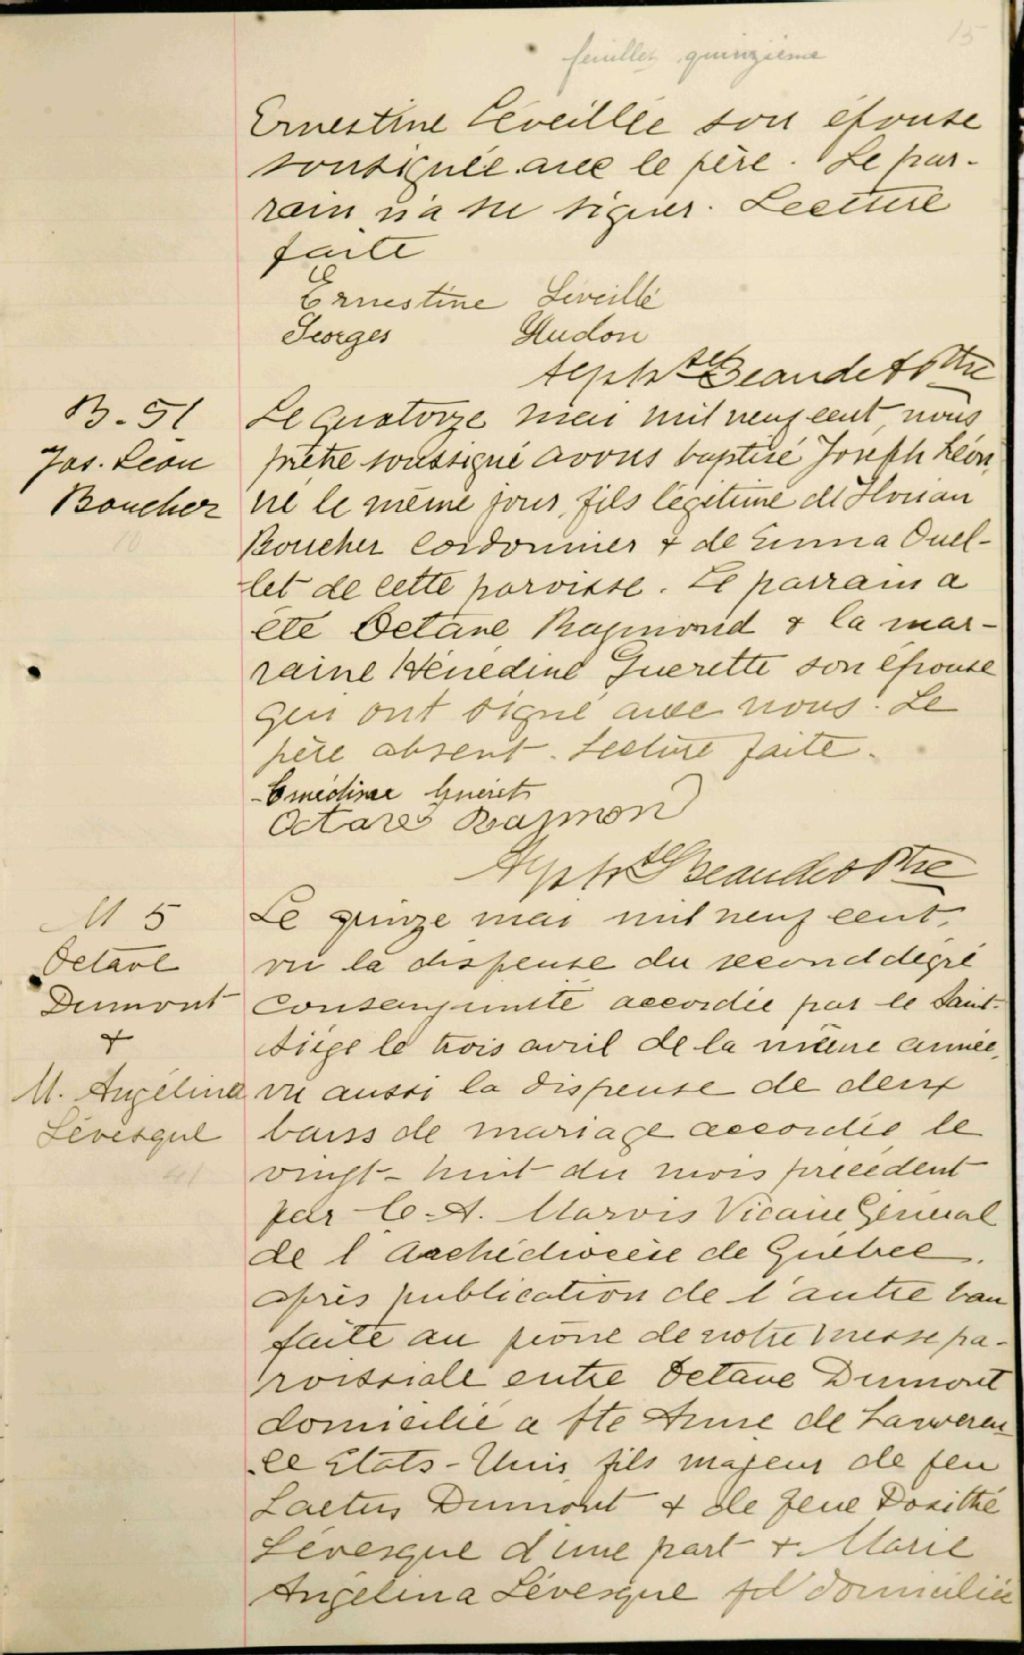 15
feuillet quinzième
Ernestine Léveillée son épouse
soussignée avec le père. Le par-
rain n'a su signer. Lecture
faite
Ernestine Léveillé
Georges Hudon
Alphse Beaudet Ptre
B. 51
Jos. Léon
Boucher
Le quatorze mai mil neuf cent, nous
prêtre soussigné avons baptisé Joseph Léon,
né le même jour, fils légitime de Florian
Boucher cordonnier & de Emma Ouel-
let de cette paroisse. Le parrain a
été Octave Raymond & la mar-
raine Hénédine Guerette son épouse
qui ont signé avec nous. Le
père absent. Lecture faite.
Enédine Guérets
Octave Raymond
Alphse Beaudet Ptre
M 5
Octave
Dumont
&
M. Angélina
Lévesque
41
Le quinze mai mil neuf cent,
vu la dispense du second dégré
consanguinité accordée par le Saint-
Siége le trois avril de la même année,
vu aussi la dispense de deux
bans de mariage accordée le
vingt-huit du mois précédent
par C. A. Marois Vicaire Général
de l'Archidiocèse de Québec,
après publication de l'autre ban
faite au prône de notre messe pa-
roissiale entre Octave Dumont
domicilié a Ste Anne de Lawren
ce Etats-Unis, fils majeur de feu
Laetus Dumont & de feue Dosithé
Lévesque d'une part & Marie
Angélina Lévesque domiciliée